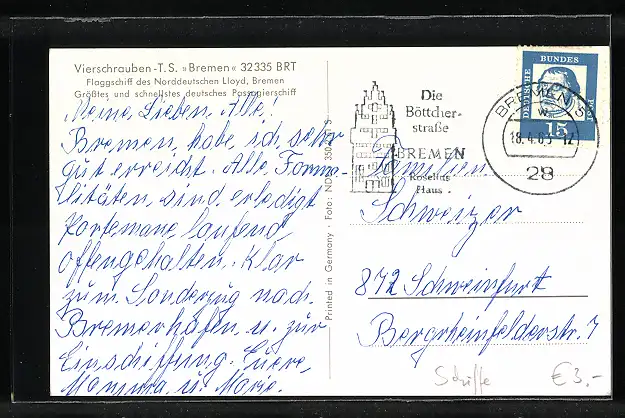 Vierschrauben-T.S. »Bremen« 32335 BRT
Flaggschiff des Norddeutschen Lloyd, Bremen
Größtes und schnellstes deutsches Passagierschiff
Meine Lieben, Alle!
Bremen, habe ich sehr
gut erreicht. Alle, Forma-
litäten, sind erledigt
Portemane laufend
offengehalten. Klar
zum Sonderzug nach.
Bremerhafen u. zur
Einschiffung. Euere,
Mamma, u. Mario.
Printed in Germany · Foto: ND
Die
Böttcher-
straße
BREMEN
Roselius
Haus
DEUTSCHE BUNDES
15
BREMEN 5
18.4.63 - 12
28
Familien,
Schweizer
872 Schweinfurt
Bergrheinfelderstr. 7
Schiffe
€ 3,-